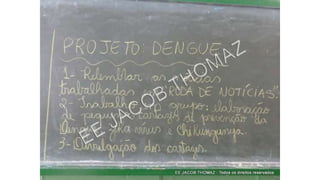 PROJETO: DENGUE
1- Relembrar as notícias
trabalhadas na "RODA DE NOTÍCIAS".
2- Trabalho em grupo: elaboração
de pequenos cartazes de prevenção da
Dengue, Zika vírus e Chikungunya
3- Divulgação dos cartazes.
EE JACOB THOMAZ
EE JACOB THOMAZ - Todos os direitos reservados